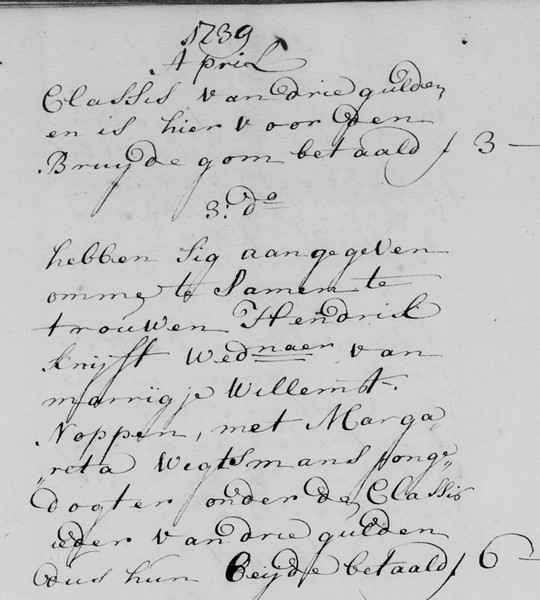 1739
April
Classis van drie gulden
en is hier voor den
Bruÿdegom betaald f 3 -
3: do
hebben sig aangegeven
omme te Samen te
trouwen Hendrick
Knijft Wednaer van
marrigje Willemst.
Noppen, met Marga„
„reta Wegtsmans jonge„
dogter onder de Classis
ieder van drie gulden
dus hun beÿde betaald f 6 -